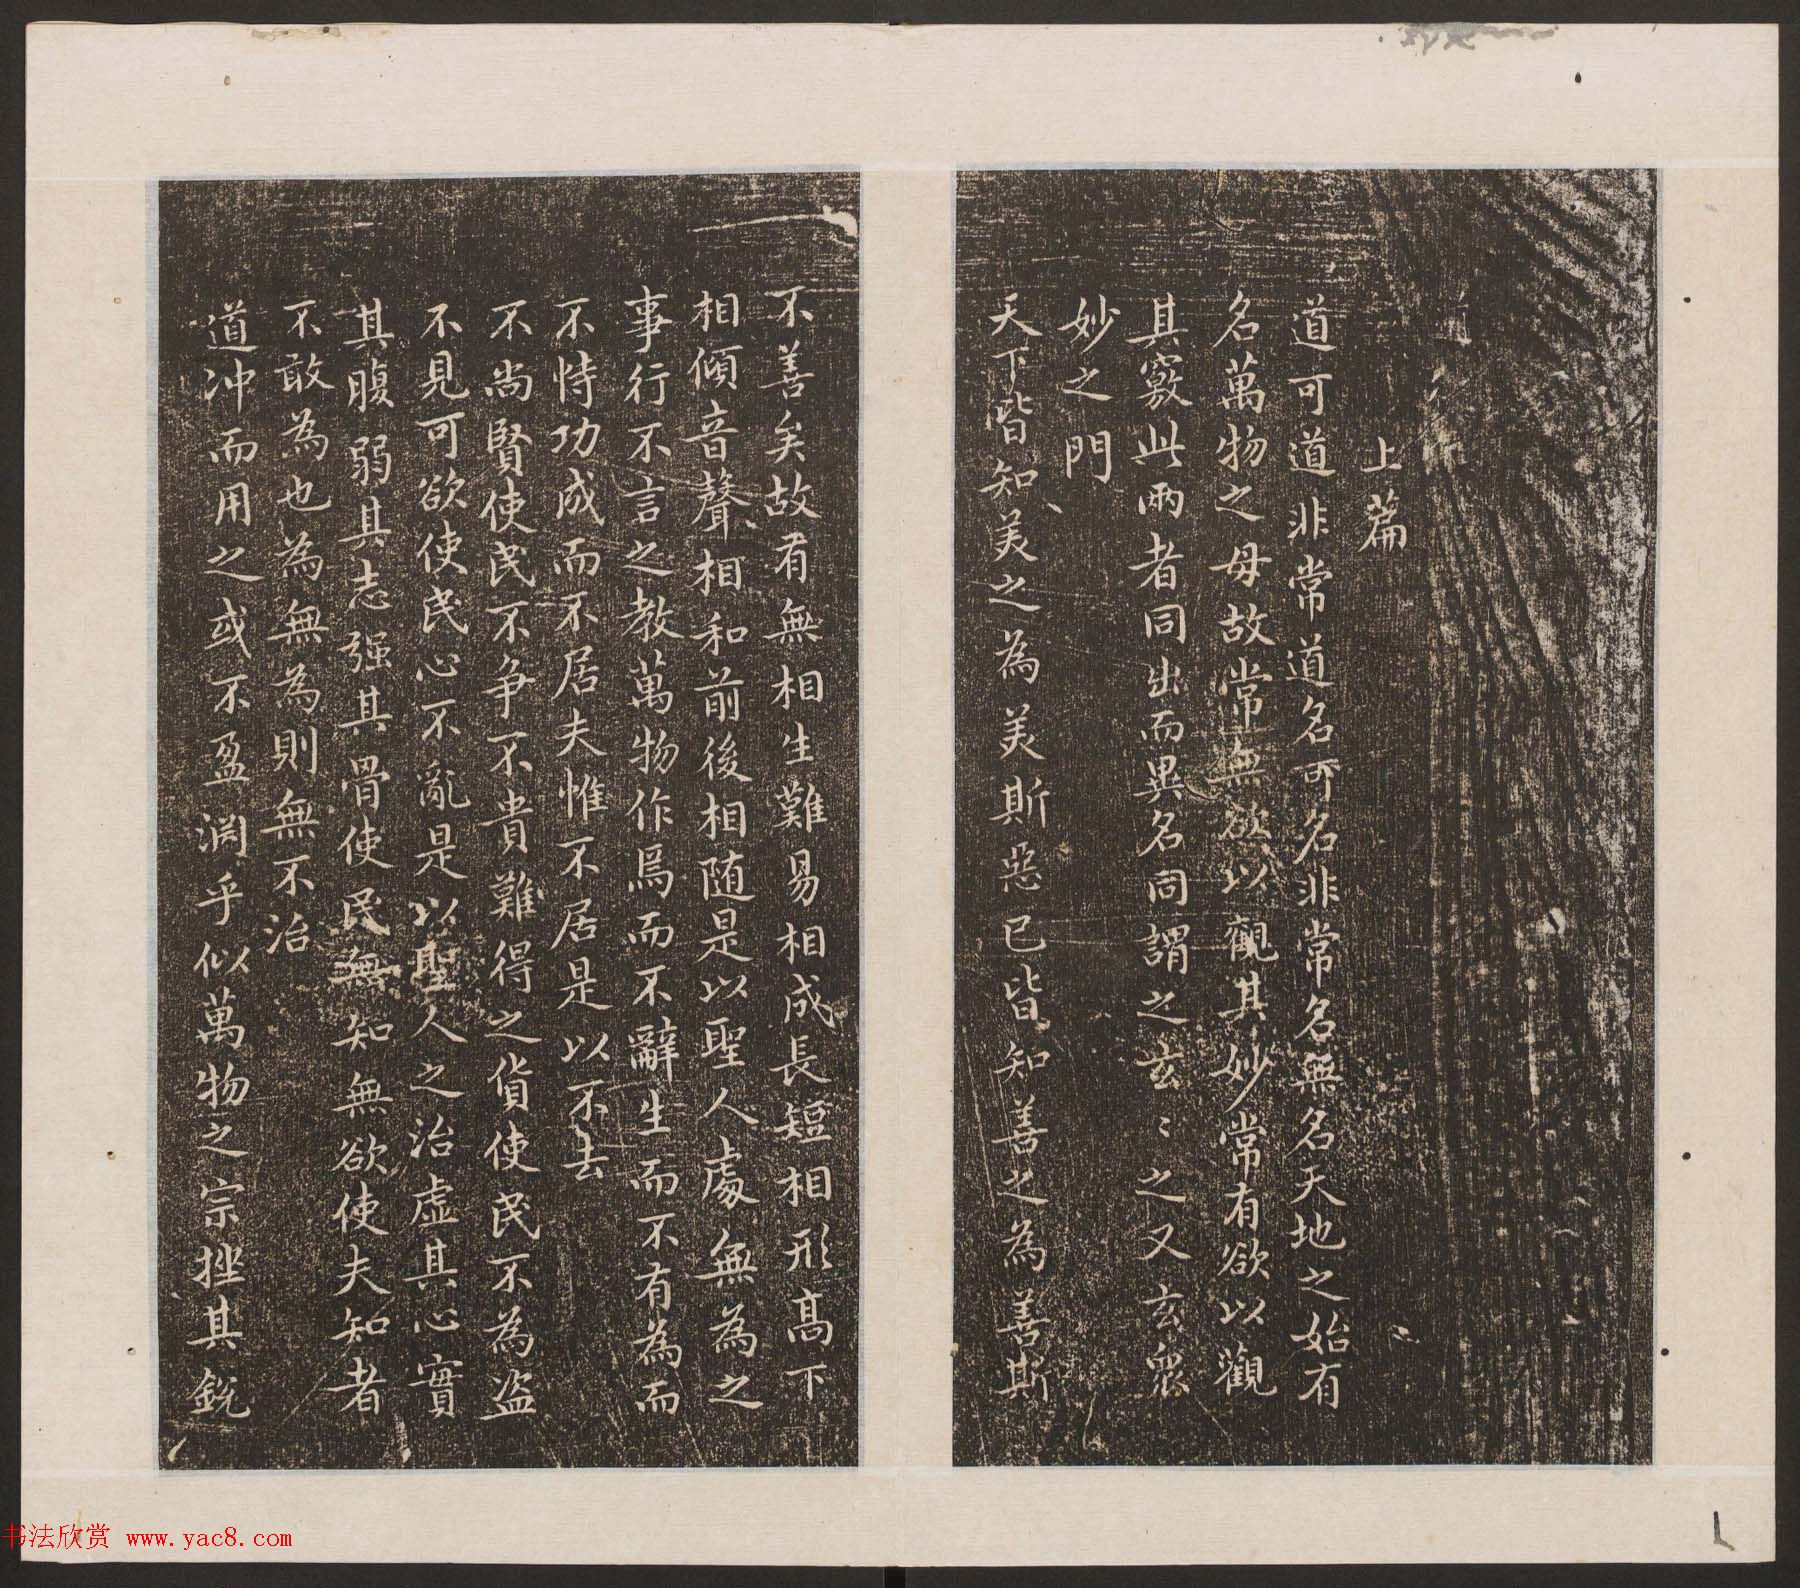 道
上篇
道可道非常道名可名非常名無名天地之始有
名萬物之母故常無欲以觀其妙常有欲以觀
其竅此兩者同出而異名同謂之玄〻之又玄眾
妙之門
天下皆知美之為美斯惡已皆知善之為善斯
不善矣故有無相生難易相成長短相形高下
相傾音聲相和前後相随是以聖人處無為之
事行不言之教萬物作焉而不辭生而不有為而
不恃功成而不居夫惟不居是以不去
不尚賢使民不争不貴難得之貨使民不為盗
不見可欲使民心不亂是以聖人之治虛其心實
其腹弱其志强其骨使民無知無欲使夫知者
不敢為也為無為則無不治
道冲而用之或不盈渊乎似萬物之宗挫其銳
书法欣赏 www.yac8.com